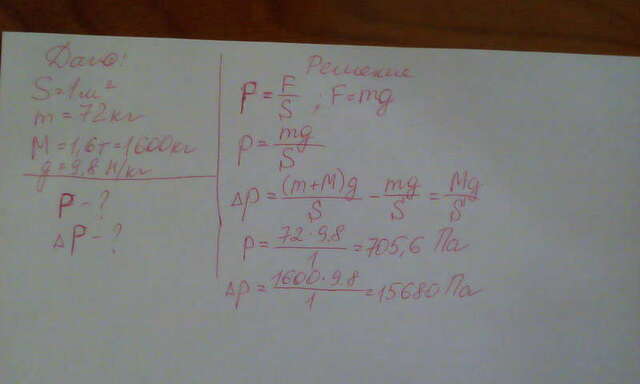 Дано:
S=1м²
m=72кг
M=1,6т=1600кг
g=9,8 Н/кг
P-?
ΔP-?
Решение
P=F/S ; F=mg
P=mg/S
ΔP=(m+M)g/S - mg/S = Mg/S
P=72·9,8/1=705,6 Па
ΔP=1600·9,8/1=15680 Па